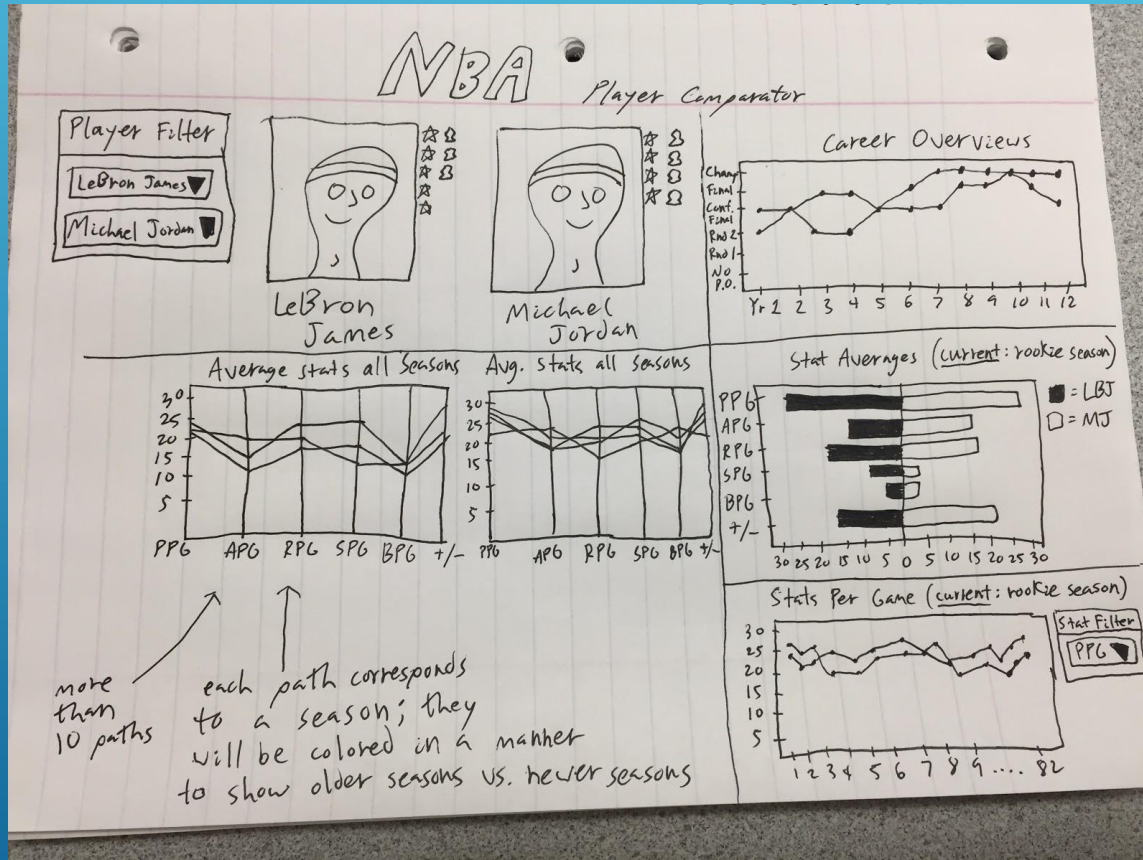 NBA
Player Comparator
Player Filter
LeBron James
Michael Jordan
LeBron
James
Michael
Jordan
Career Overviews
Champ
Final
Conf.
Final
Rnd 2
Rnd 1
No
P.O.
Yr 1 2 3 4 5 6 7 8 9 10 11 12
Average stats all seasons
30
25
20
15
10
5
PPG APG RPG SPG BPG +/-
Avg. stats all seasons
30
25
20
15
10
5
PPG APG RPG SPG BPG +/-
Stat Averages (current: rookie season)
PPG
APG
RPG
SPG
BPG
+/-
30 25 20 15 10 5 0 5 10 15 20 25 30
= LBJ
= MJ
Stats Per Game (current: rookie season)
30
25
20
15
10
5
1 2 3 4 5 6 7 8 9 .... 82
Stat Filter
PPG
more
than
10 paths
each path corresponds
to a season; they
will be colored in a manner
to show older seasons vs. newer seasons